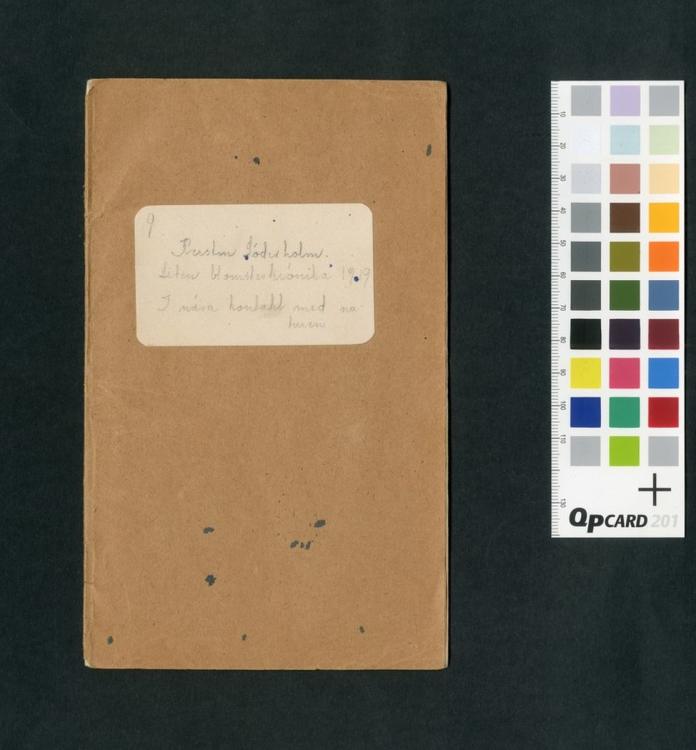 9
Kerstin Söderholm.
Liten blomsterkrönika 1919
I nära kontakt med na-
turen
10
20
30
40
50
60
70
80
90
100
110
130
QPCARD 201